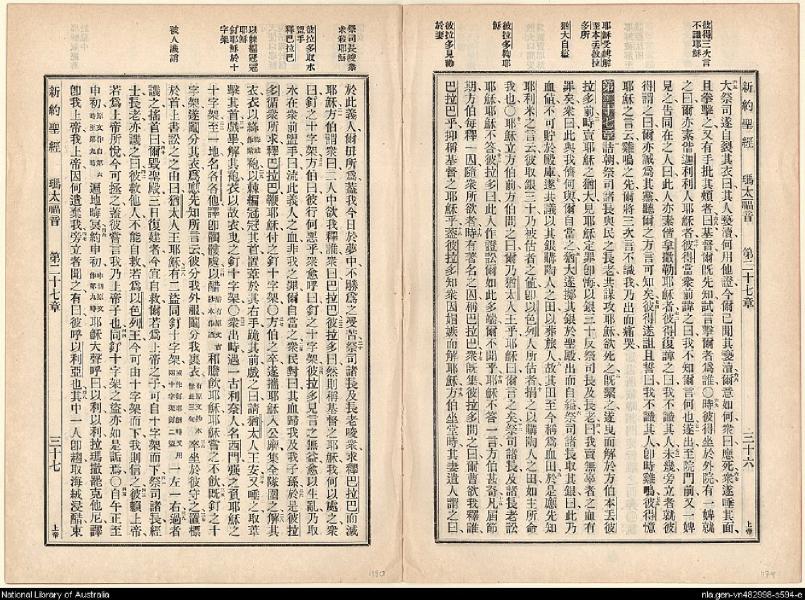 彼得三次言
不識耶穌
耶穌受綑解
至本丟彼拉
多所
猶大自縊
彼拉多鞫耶
穌
彼拉多見勸
於妻
新約聖經 瑪太福音 第二十七章 三十六 上帝
大祭司遂自裂其衣曰其人褻瀆何用他證今爾已聞其褻瀆爾意如何衆曰應死衆遂唾其面
且拳擊之又有手批其頰者曰基督爾旣先知試言擊爾者爲誰○時彼得坐於外院有一婢就
之曰爾亦素偕迦利利人耶穌者彼得當衆前諱之曰我不知爾言何也遂出至院門前又一婢
見之告同在之人曰此人亦素偕拿撒勒耶穌者彼得復諱之曰我不識其人未幾旁立者就彼
得謂之曰爾亦誠爲其黨聽爾之方言可知矣彼得遂詛且誓曰我不識其人卽時雞鳴彼得憶
耶穌之言云雞鳴之先爾將三次言不識我乃出而痛哭
第二十七章 詰朝祭司諸長與民之長老共謀攻耶穌欲死之旣縶之遂曳而解於方伯本丟彼
拉多前○時賣耶穌之猶大見耶穌定罪卽悔以銀三十反祭司長及長老曰我賣無辜者之血有
罪矣衆曰此與我儕何與爾自當之猶大遂擲其銀於聖殿出而自縊祭司諸長取其銀曰此乃
血値不可貯於殿庫遂共議以其銀購陶人之田以葬旅人故其田至今稱爲血田於是應先知
耶利米之言云彼取銀三十乃被估者之値卽以色列人所估者捐之以購陶人之田如主所命
我也○耶穌立方伯前方伯問之曰爾乃猶太人王乎耶穌曰爾言之矣祭司諸長及諸長老訟
耶穌耶穌不答彼拉多曰此人作證訟爾如此多端爾不聞乎耶穌不答一言方伯甚奇凡届節
期方伯每釋一囚隨衆所欲者時有著名之囚稱巴拉巴衆旣集彼拉多問之曰爾曹欲我釋誰
巴拉巴乎抑稱基督之耶穌乎蓋彼拉多知衆因媢嫉而解耶穌方伯坐堂時其妻遣人謂之曰
祭司長唆衆
求殺耶穌
彼拉多取水
盥手
釋巴拉巴
以棘編冠冠
耶穌
釘耶穌於十
字架
敵人譏誚
新約聖經 瑪太福音 第二十七章 三十七 上帝
於此義人爾毋所爲蓋我今日於夢中不勝爲之受苦祭司諸長及長老唆衆求釋巴拉巴而滅
耶穌方伯謂衆曰二人中欲我釋誰衆曰巴拉巴彼拉多曰然則稱基督之耶穌我何以處之衆
曰釘之十字架方伯曰彼行何惡乎衆愈呼曰釘之十字架彼拉多見言之無益愈以生亂乃取
水在衆前盥手曰流此義人之血非我之罪爾自當之衆民對曰其血歸我及我子孫於是彼拉
多循衆所求釋巴拉巴鞭耶穌付之釘十字架○方伯之卒遂攜耶穌入公廨集全隊圍之解其
衣衣以絳袍以棘編冠冠其首置葦於其右手跪其前戲之曰請猶太人王安又唾之取葦
擊其首戲畢解其袍衣以故衣曳之釘十字架○衆出時遇一古利奈人名西門强之負耶穌之
十字架至一地名各各他譯卽髑髏處以醋和膽飲耶穌耶穌嘗之不飲旣釘之十
字架遂鬮分其衣爲應先知所言云彼分我外服鬮分我裏衣卒坐於彼守之置標
於首上書訟之之由曰猶太人王耶穌有二盜同釘十字架一左一右過者
譏之搖首曰爾毀聖殿三日復建者今宜自救爾若爲上帝之子可自十字架而下祭司諸長經
士長老亦譏之曰彼救他人不能自救若爲以色列王今可由十字架而下我則信之彼賴上帝
若爲上帝所悅今可拯之蓋彼嘗言我乃上帝子也同釘十字架之盜亦如是詬焉○自午正至
申初遍地晦冥約申初耶穌大聲呼曰以利以利拉瑪撒罷克他尼譯
卽我上帝我上帝因何遺棄我旁立者聞之有曰彼呼以利亞也其中一人卽趨取海絨浸醋束
National Library of Australia
nla.gen-vn482998-s594-e